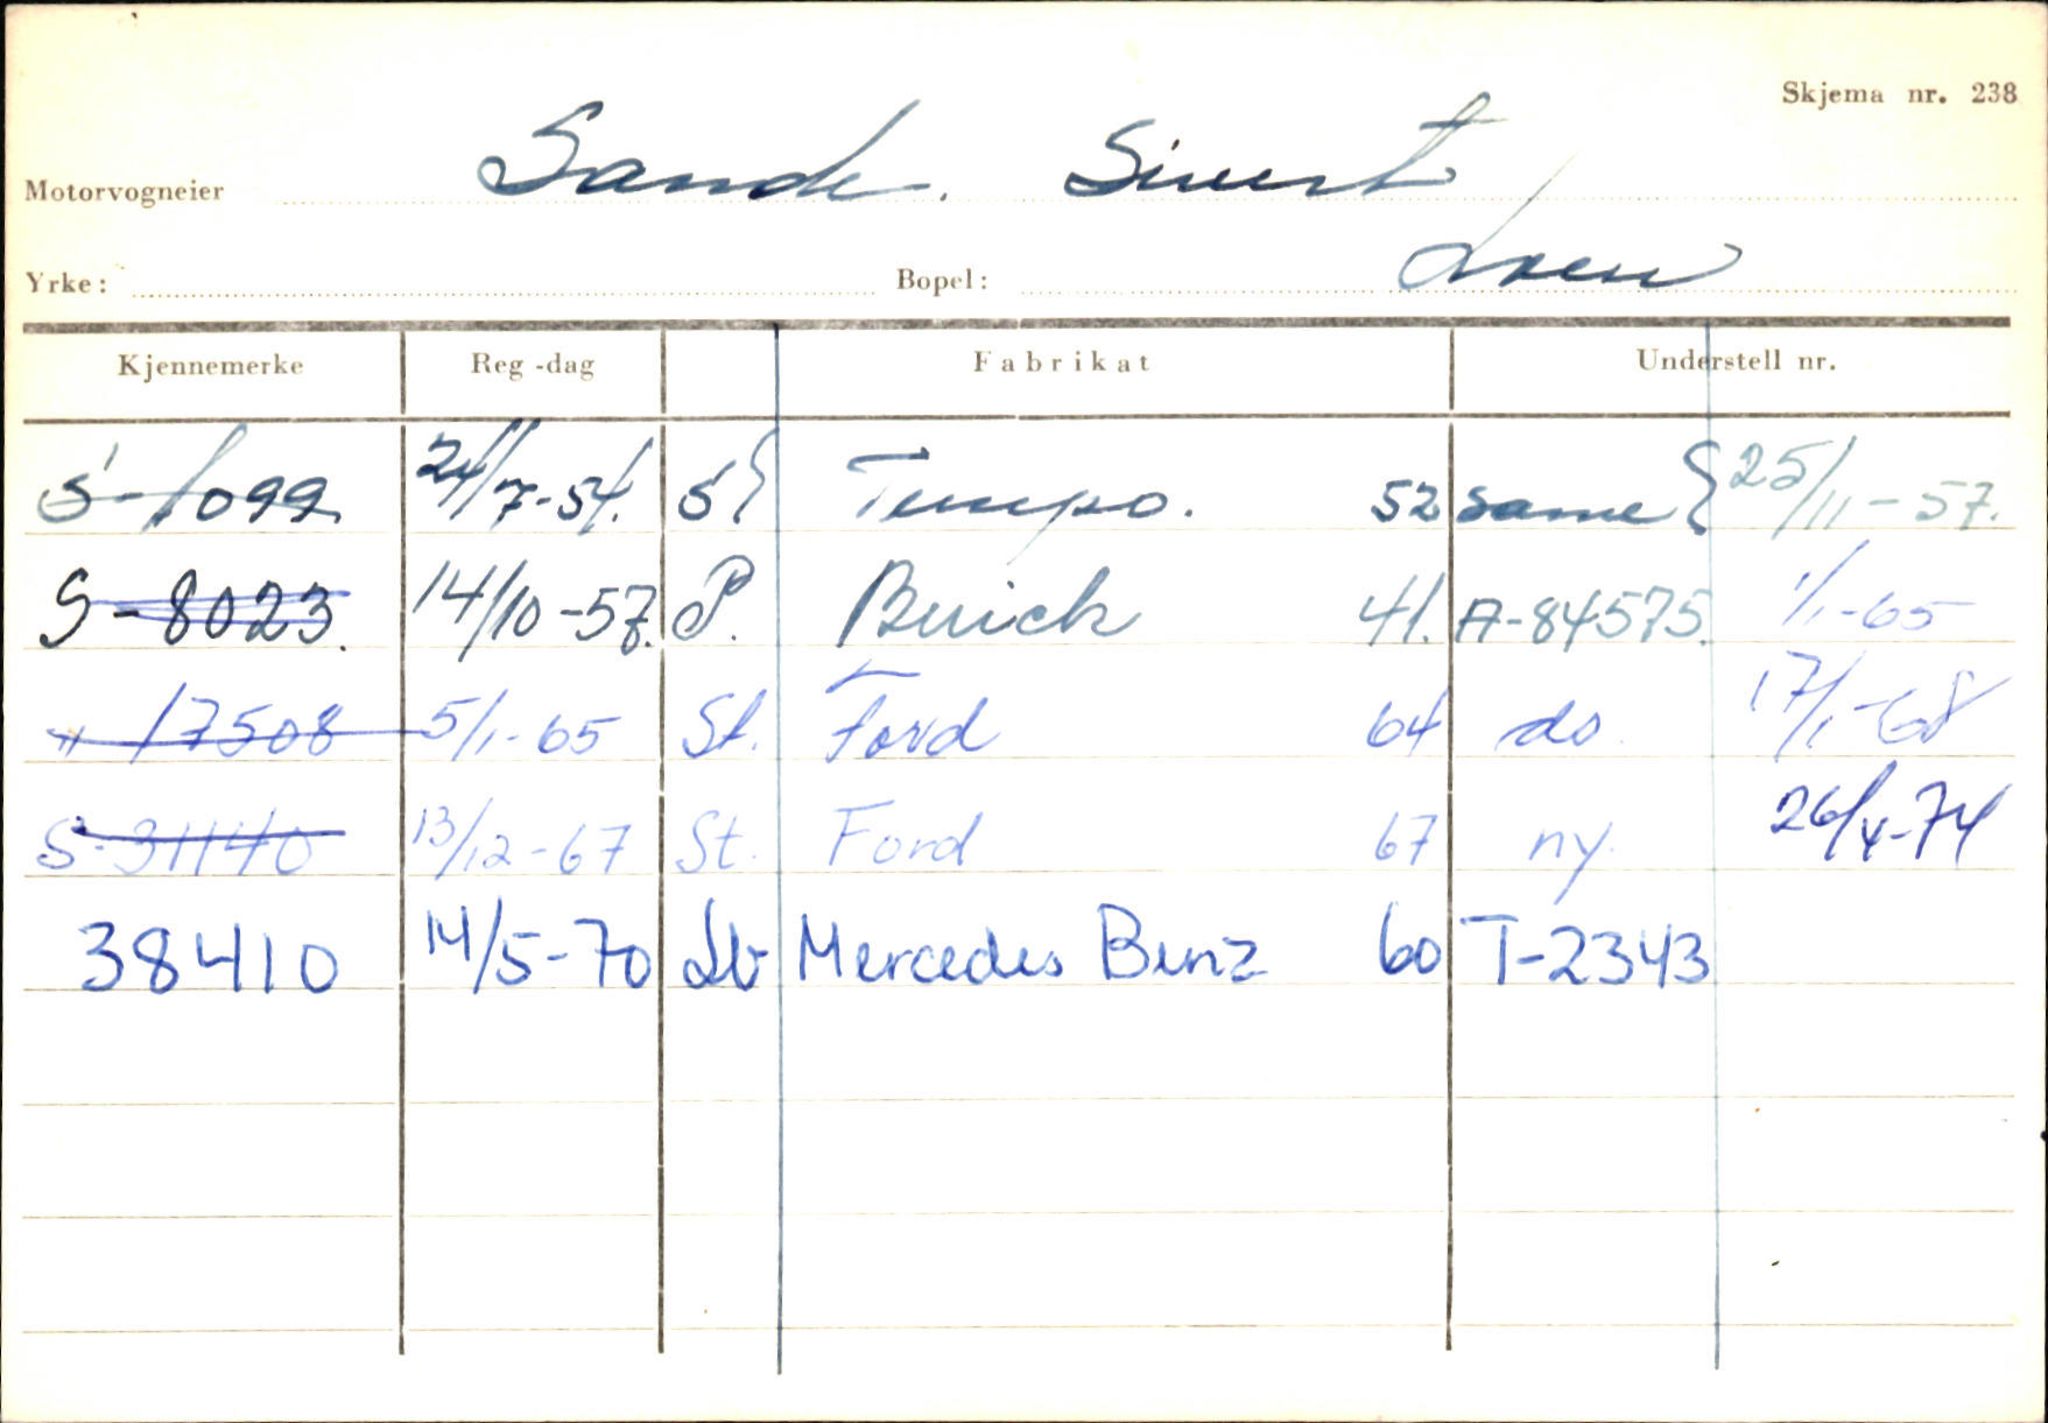 Skjema nr. 238
Motorvogneier Sande. Sivert
Yrke: Bopel: Loen
Kjennemerke Reg-dag Fabrikat Understell nr.
S-1099 24/7-54. Tempo. 52 same 25/11-57.
S-8023. 14/10-57. P. Buick 41. A-84575. 1/1-65
" 17508 5/1-65 St. Ford 64 do 17/1-68
S-31140 13/12-67 St. Ford 67 ny. 26/4-74
38410 14/5-70 Lb Mercedes Benz 60 T-2343